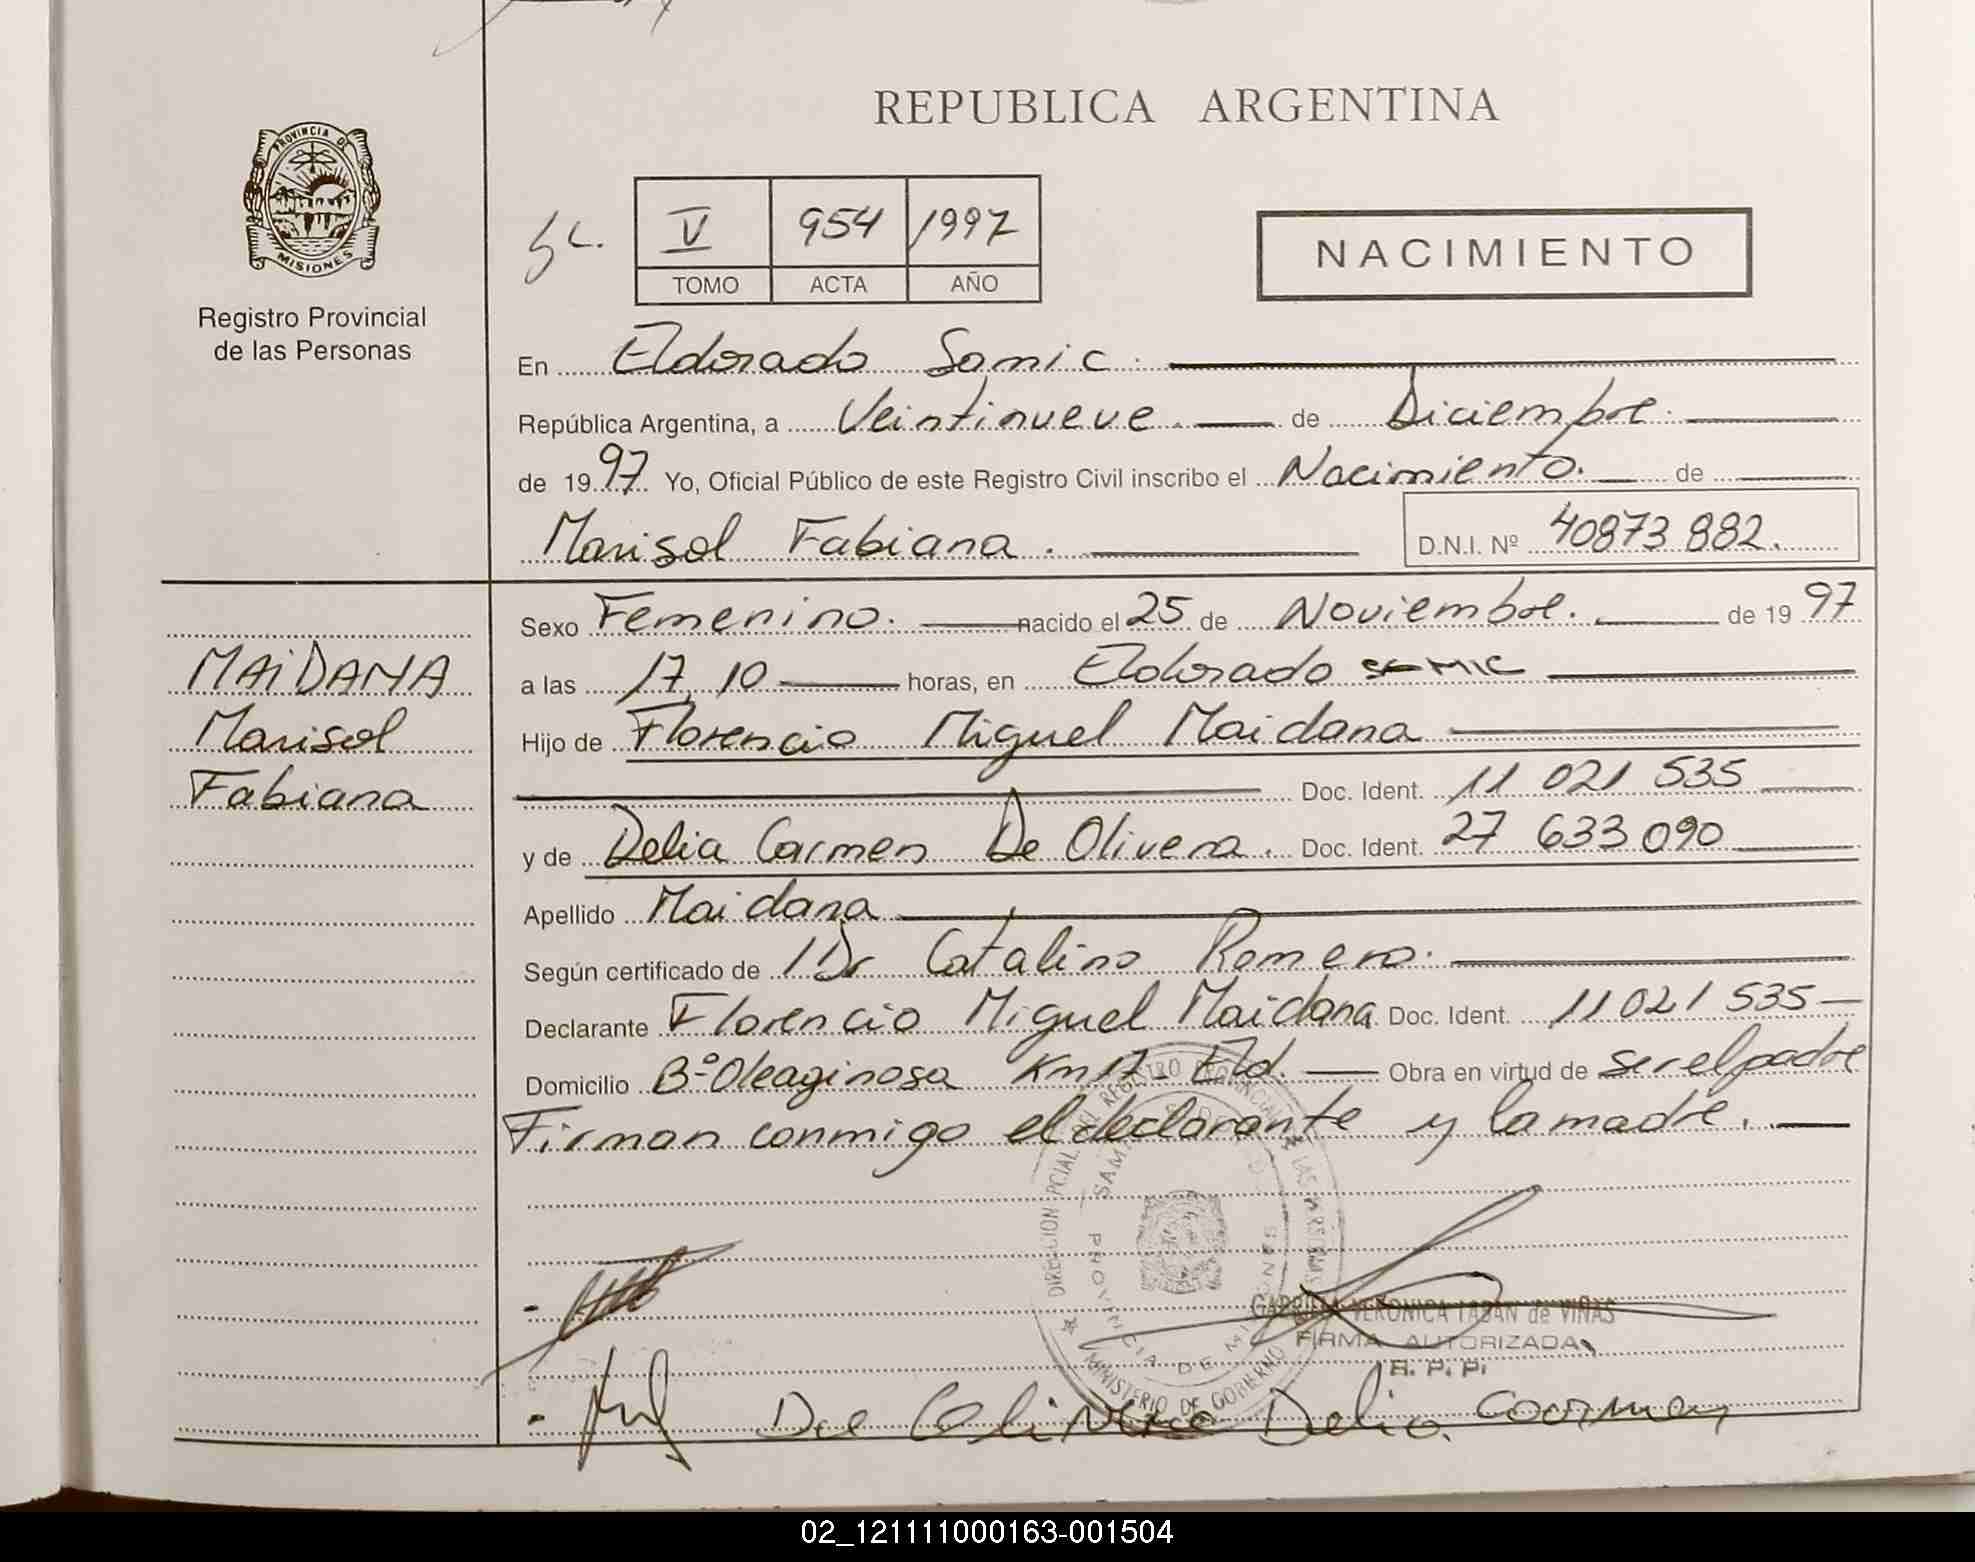 REPUBLICA ARGENTINA
PROVINCIA DE
MISIONES
Registro Provincial
de las Personas
V 954 1997
TOMO ACTA AÑO
NACIMIENTO
En Eldorado Samic.
República Argentina, a Veintinueve. de Diciembre.
de 1997. Yo, Oficial Público de este Registro Civil inscribo el Nacimiento. de
Marisol Fabiana. D.N.I. Nº 40873 882.
MAiDANA
Marisol
Fabiana
Sexo Femenino. nacido el 25 de Noviembre. de 19 97
a las 17, 10 horas, en Eldorado SAMIC
Hijo de Florencio Miguel Maidana
Doc. Ident. 11 021 535
y de Delia Carmen De Olivera. Doc. Ident. 27 633 090
Apellido Maidana
Según certificado de Dr Catalino Romero.
Declarante Florencio Miguel Maidana Doc. Ident. 11 021 535
Domicilio Bº Oleaginosa Km 17 - Eld. Obra en virtud de ser el padre
Firman conmigo el declarante y la madre.
DIRECCION PCIAL DEL REGISTRO PROVINCIAL DE LAS PERSONAS
PROVINCIA DE MISIONES
MINISTERIO DE GOBIERNO
VERONICA de VIÑAS
FIRMA AUTORIZADA
R. P. P.
De Olivera Delia Carmen
02_121111000163-001504